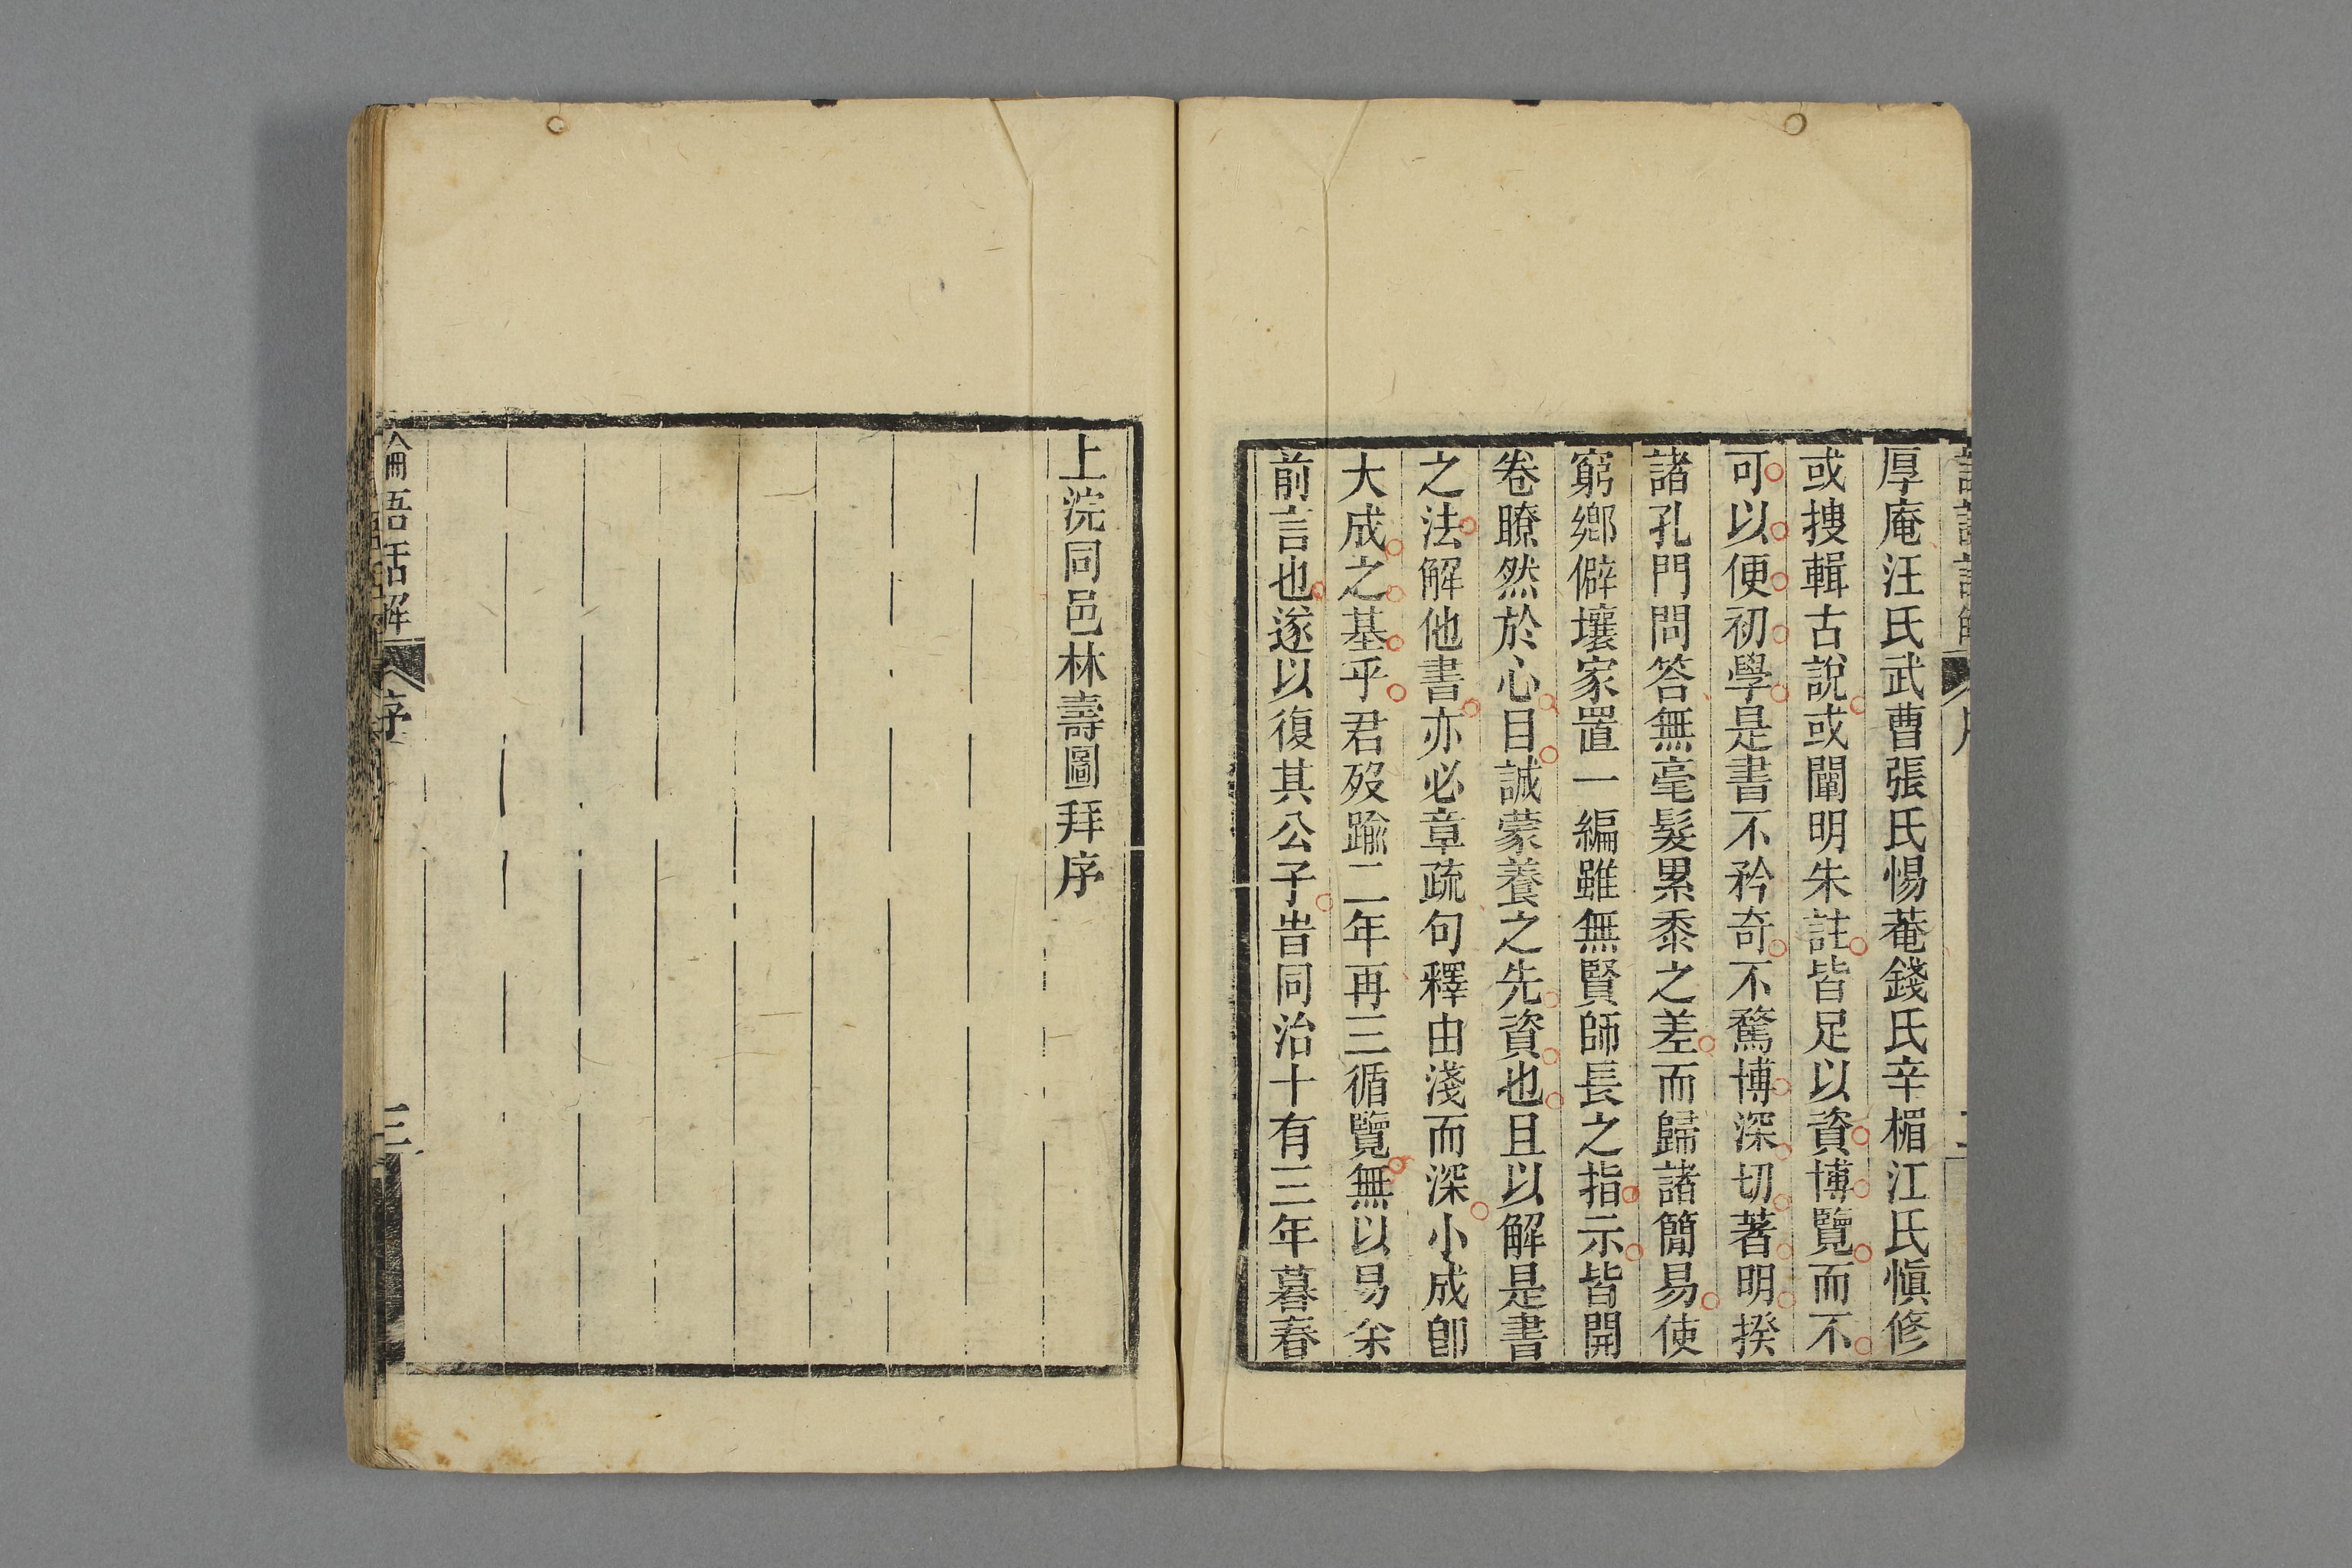 厚庵汪氏武曹張氏惕菴錢氏辛楣江氏愼修
或捜輯古說或闡明朱註皆足以資博覽而不
可以便初學是書不矜奇不騖博深切著明揆
諸孔門問答無毫髮累黍之差而歸諸簡易使
窮鄉僻壤家置一編雖無賢師長之指示皆開
卷瞭然於心目誠蒙養之先資也且以解是書
之法解他書亦必章疏句釋由淺而深小成卽
大成之基乎君歿踰二年再三循覽無以易余
前言也遂以復其公子旹同治十有三年暮春
上浣同邑林壽圖拜序
論語話解
序
三